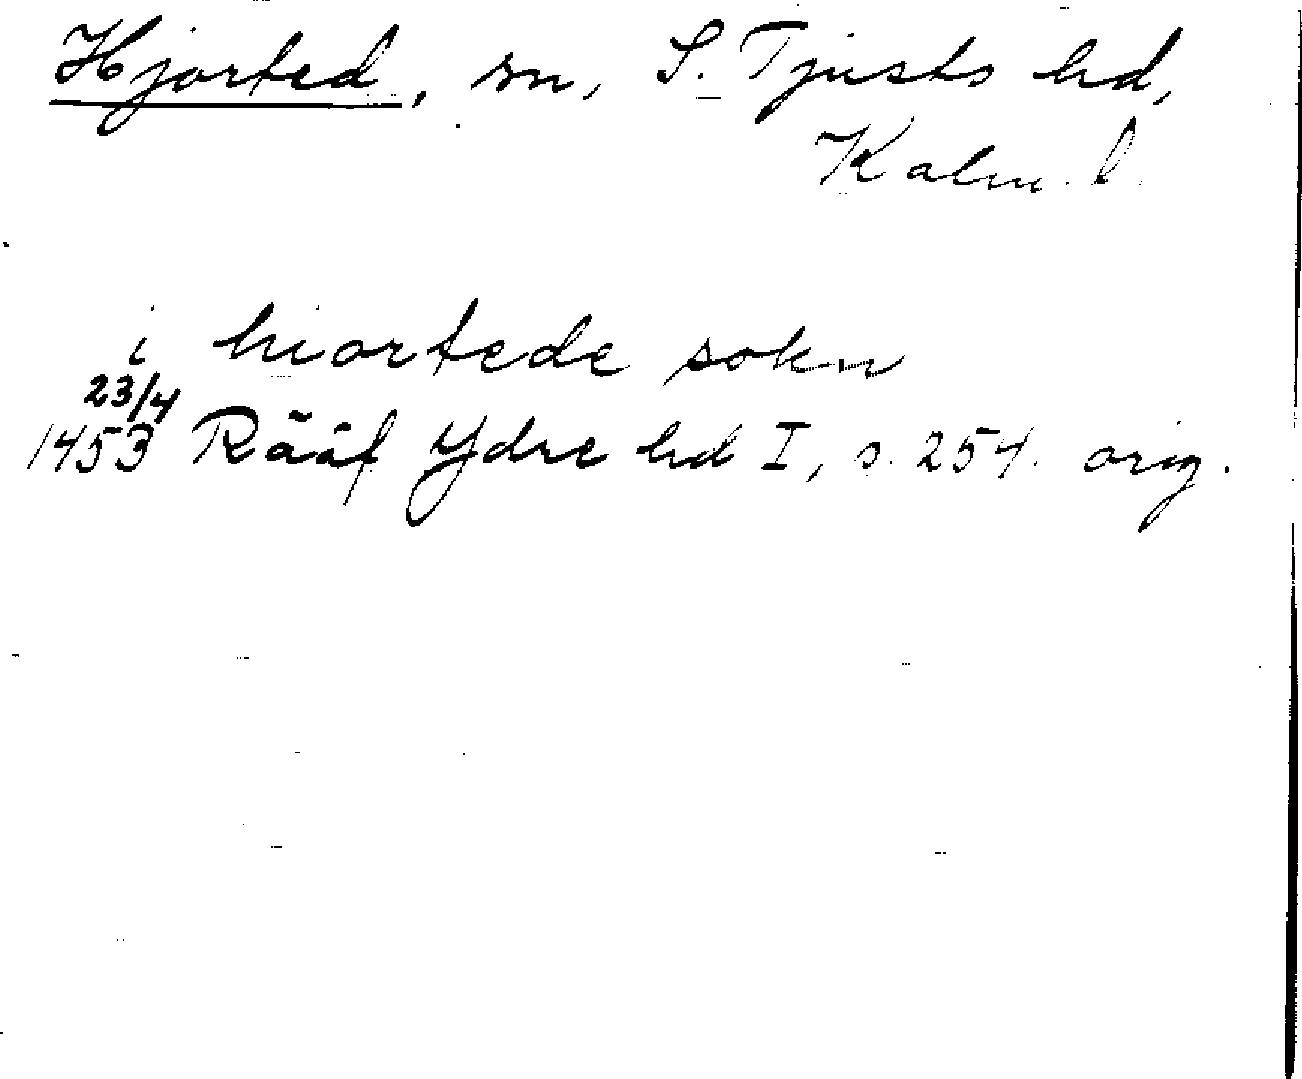 Hjorted, sn, S. Tjusts hd,
Kalm. l.
i hiortede sokn
23/4
1453 Rääf Ydre hd I, s. 254. orig.